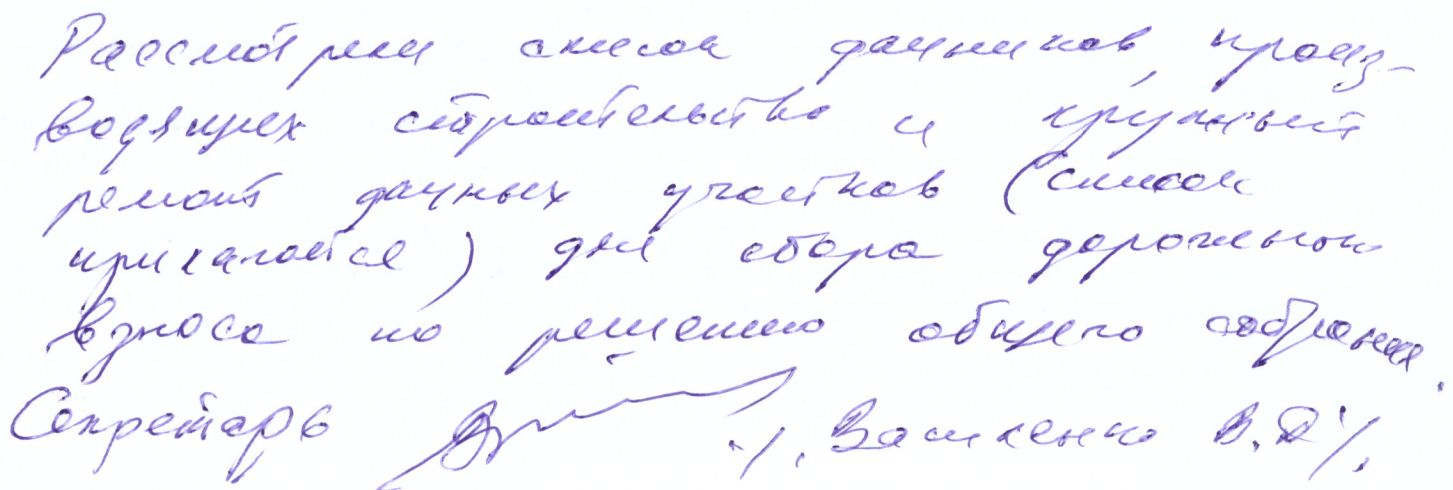 Рассмотрели список дачников, произ-
водящих строительство и крупный
ремонт дачных участков (список
прилагается) для сбора дорожного
взноса по решению общего собрания.
Секретарь В.